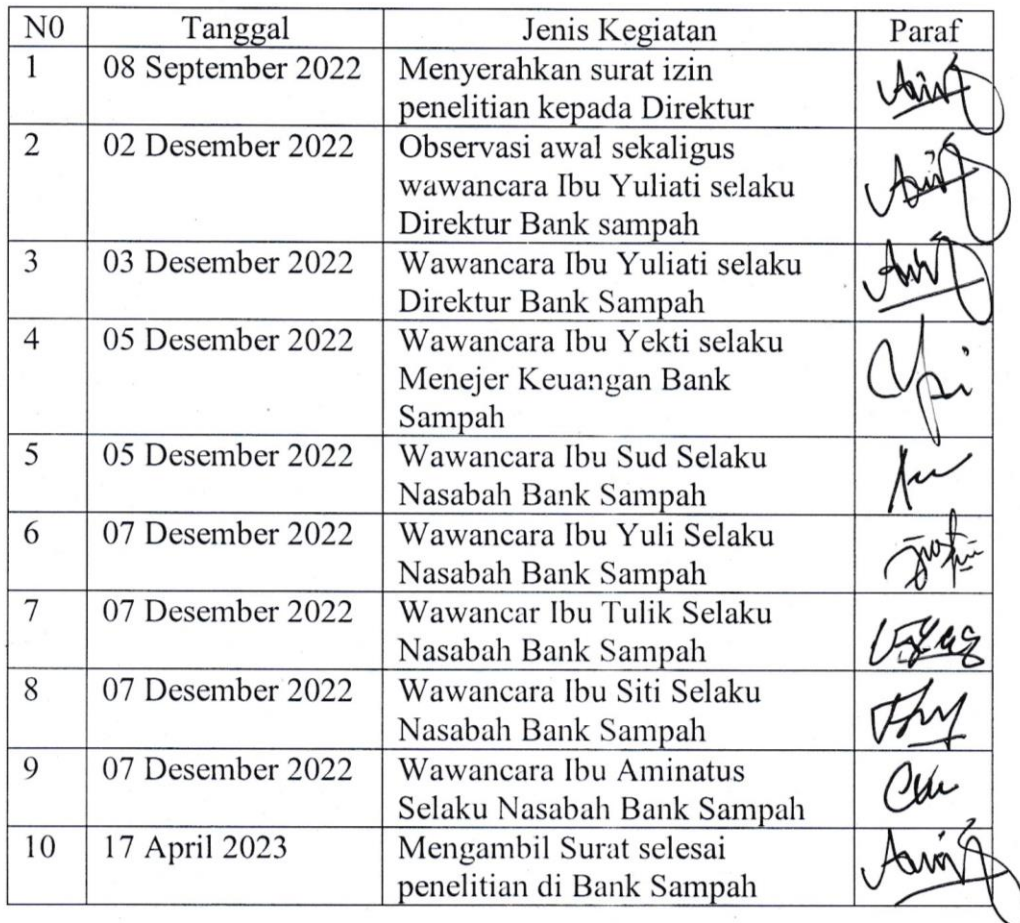 N0 Tanggal Jenis Kegiatan Paraf
1 08 September 2022 Menyerahkan surat izin
penelitian kepada Direktur
2 02 Desember 2022 Observasi awal sekaligus
wawancara Ibu Yuliati selaku
Direktur Bank sampah
3 03 Desember 2022 Wawancara Ibu Yuliati selaku
Direktur Bank Sampah
4 05 Desember 2022 Wawancara Ibu Yekti selaku
Menejer Keuangan Bank
Sampah
5 05 Desember 2022 Wawancara Ibu Sud Selaku
Nasabah Bank Sampah
6 07 Desember 2022 Wawancara Ibu Yuli Selaku
Nasabah Bank Sampah
7 07 Desember 2022 Wawancar Ibu Tulik Selaku
Nasabah Bank Sampah
8 07 Desember 2022 Wawancara Ibu Siti Selaku
Nasabah Bank Sampah
9 07 Desember 2022 Wawancara Ibu Aminatus
Selaku Nasabah Bank Sampah
10 17 April 2023 Mengambil Surat selesai
penelitian di Bank Sampah